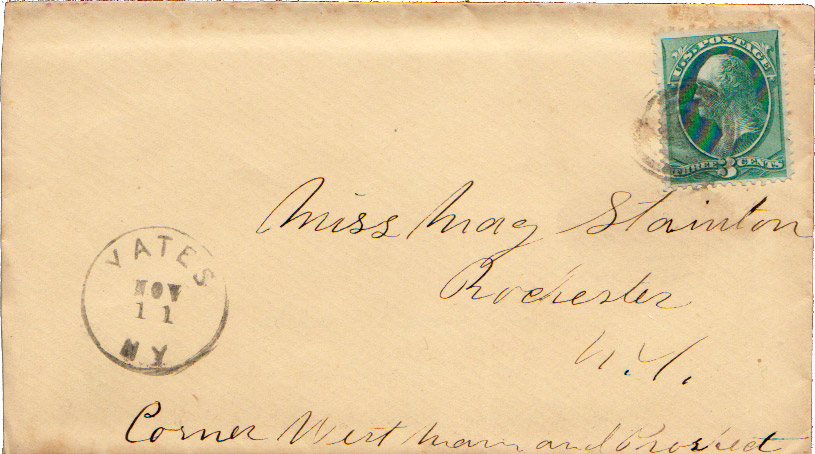 U.S. POSTAGE
THREE 3 CENTS
Miss Mag Stainton
Rochester
N.Y.
YATES
NOV
11
N.Y.
Corner West Main and Prospect